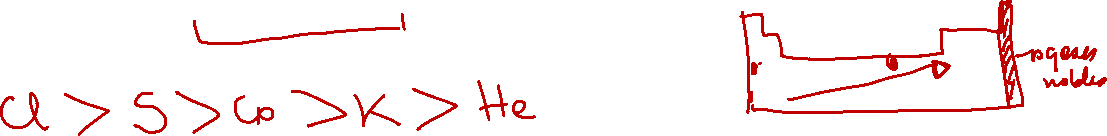 Cl > S > Co > K > He
gases
nobles